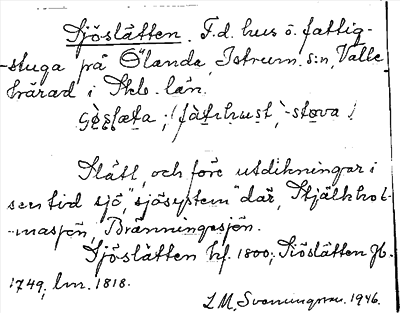 Sjöslätten. F.d. hus o. fattig-
-stuga på Ölanda, Istrum s:n, Valle
härad i Skb. län.
Slätt, och före utdikningar i
sen tid sjö, "sjösystem" där, Stjälkhol-
-masjön, Bränningesjön.
Sjöslätten hf. 1800; Siöslätten Jb.
1749, lm. 1818.
L M, Svenungsson. 1946.